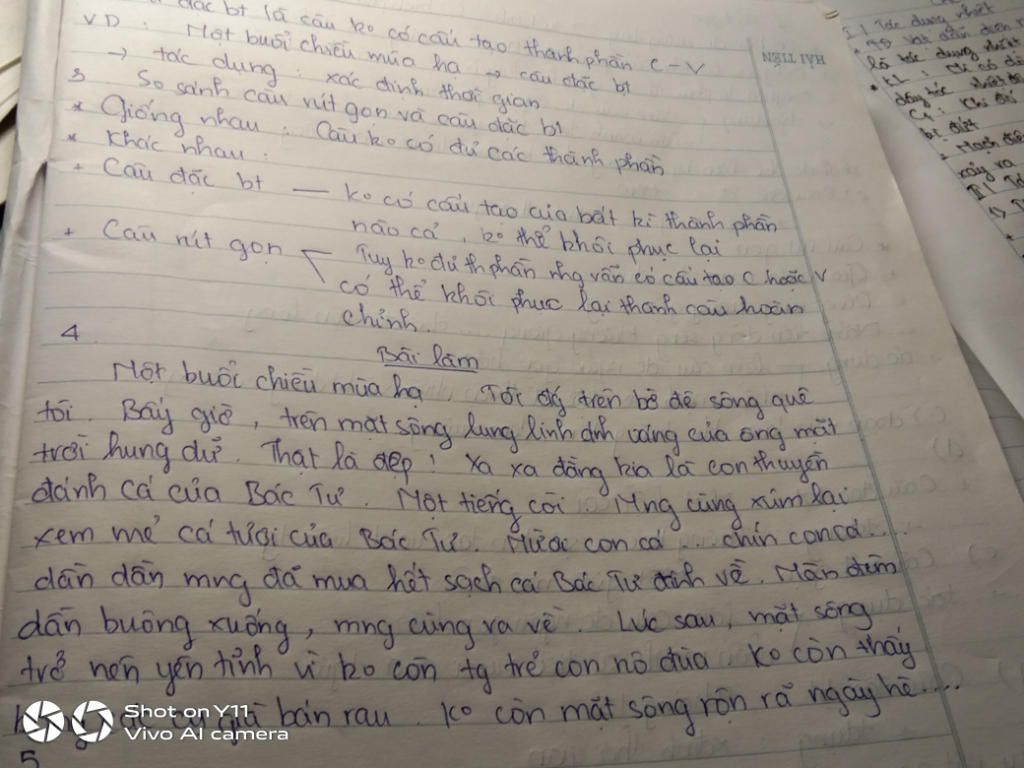 đặc bt là câu ko có cấu tạo thành phần C-V
VD: Một buổi chiều mùa hạ → câu đặc bt
→ tác dụng: xác định thời gian
3 So sánh câu rút gọn và câu đặc bt
* Giống nhau: Câu ko có đủ các thành phần
* Khác nhau:
+ Câu đặc bt — ko có cấu tạo của bất kì thành phần
nào cả, ko thể khôi phục lại
+ Câu rút gọn < Tuy ko đủ th phần nhg vẫn có cấu tạo C hoặc V
có thể khôi phục lại thành câu hoàn
chỉnh.
4
Bài làm
Một buổi chiều mùa hạ. Tôi đg trên bờ đê sông quê
tôi. Bấy giờ, trên mặt sông lung linh ánh vàng của ông mặt
trời hung dữ. Thật là đẹp! Xa xa đằng kia là con thuyền
đánh cá của Bác Tư. Một tiếng còi. Mng cùng xúm lại
xem mẻ cá tươi của Bác Tư. Mười con cá... chín con cá....
dần dần mng đã mua hết sạch cá Bác Tư đánh về. Màn đêm
dần buông xuống, mng cùng ra về. Lúc sau, mặt sông
trở nên yên tĩnh vì ko còn tg trẻ con nô đùa. Ko còn thấy
già bán rau. Ko còn mặt sông rộn rã ngày hè....
5
HẢI TIẾN
I Tác dụng nhiệt
Shot on Y11
Vivo AI camera